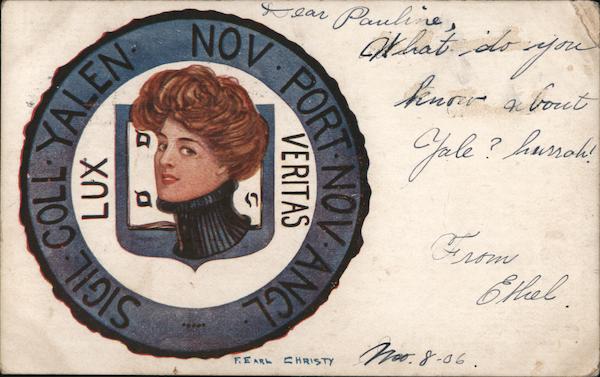 SIGIL · COLL · YALEN · NOV · PORT · NOV · ANGL ·
LUX
VERITAS
Dear Pauline,
What do you
know about
Yale? hurrah!
From
Ethel.
F. EARL CHRISTY
Nov. 8-06.